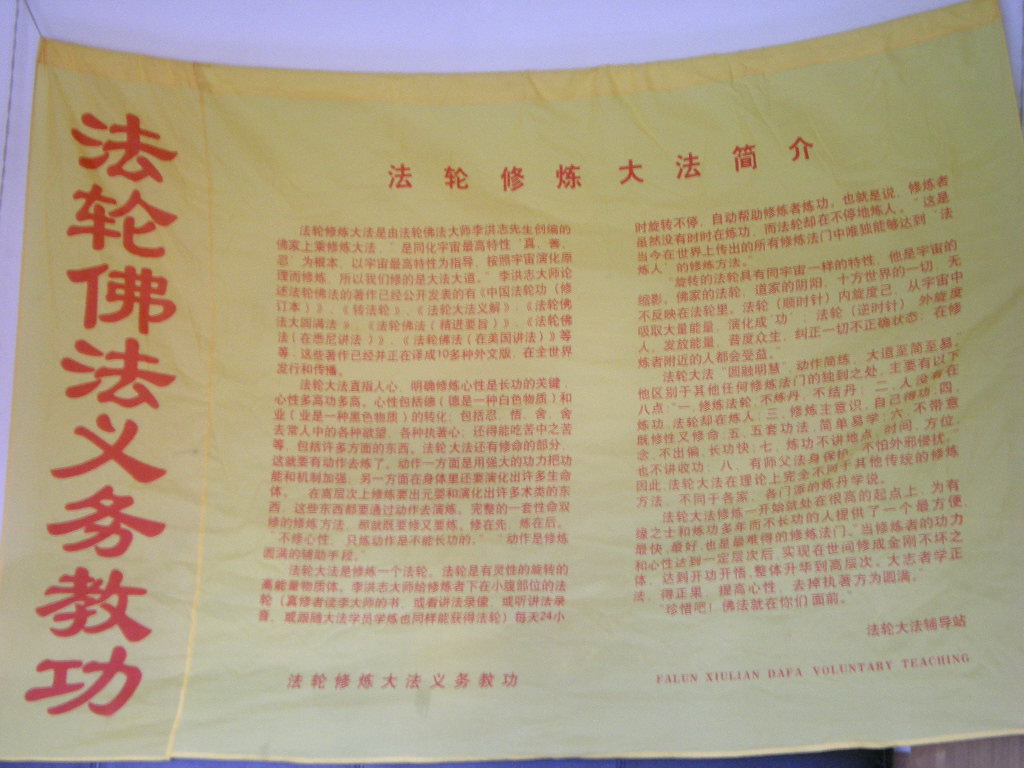 法轮佛法义务教功
法轮修炼大法简介
法轮修炼大法是由法轮佛法大师李洪志先生创编的
佛家上乘修炼大法，“是同化宇宙最高特性‘真、善、
忍’为根本，以宇宙最高特性为指导，按照宇宙演化原
理而修炼，所以我们修的是大法大道。”李洪志大师论
述法轮佛法的著作已经公开发表的有《中国法轮功（修
订本）》、《转法轮》、《法轮大法义解》、《法轮佛
法大圆满法》、《法轮佛法（精进要旨）》、《法轮佛
法（在悉尼讲法）》、《法轮佛法（在美国讲法）》等
等，这些著作已经并正在译成10多种外文版，在全世界
发行和传播。
法轮大法直指人心，明确修炼心性是长功的关键，
心性多高功多高。心性包括德（德是一种白色物质）和
业（业是一种黑色物质）的转化；包括忍、悟、舍，舍
去常人中的各种欲望、各种执著心；还得能吃苦中之苦
等，包括许多方面的东西。法轮大法还有修命的部分，
这就要有动作去炼了。动作一方面是用强大的功力把功
能和机制加强，另一方面在身体里还要演化出许多生命
体。 在高层次上修炼要出元婴和演化出许多术类的东
西，这些东西都要通过动作去演炼。完整的一套性命双
修的修炼方法，那就既要修又要炼。修在先，炼在后。
“不修心性，只炼动作是不能长功的。”“动作是修炼
圆满的辅助手段。”
法轮大法是修炼一个法轮。法轮是有灵性的旋转的
高能量物质体。李洪志大师给修炼者下在小腹部位的法
轮（真修者读李大师的书，或看讲法录像，或听讲法录
音，或跟随大法学员学炼也同样能获得法轮）每天24小
时旋转不停，自动帮助修炼者炼功。也就是说，修炼者
虽然没有时时在炼功，而法轮却在不停地炼人。“这是
当今在世界上传出的所有修炼法门中唯独能够达到‘法
炼人’的修炼方法。”
“旋转的法轮具有同宇宙一样的特性，他是宇宙的
缩影。佛家的法轮，道家的阴阳，十方世界的一切，无
不反映在法轮里。法轮（顺时针）内旋度己，从宇宙中
吸取大量能量，演化成‘功’；法轮（逆时针）外旋度
人，发放能量，普度众生，纠正一切不正确状态；在修
炼者附近的人都会受益。”
法轮大法“圆融明慧”动作简练，大道至简至易。
他区别于其他任何修炼法门的独到之处，主要有以下
八点：“一、修炼法轮，不炼丹、不结丹；二、人没有在
炼功，法轮却在炼人；三、修炼主意识，自己得功；四、
既修性又修命；五、五套功法，简单易学；六、不带意
念，不出偏，长功快；七、炼功不讲地点、时间、方位，
也不讲收功；八、有师父法身保护，不怕外邪侵扰。”
因此，法轮大法在理论上完全不同于其他传统的修炼
方法，不同于各家、各门派的炼丹学说。
法轮大法修炼一开始就处在很高的起点上，为有
缘之士和炼功多年而不长功的人提供了一个最方便、
最快、最好，也是最难得的修炼法门。“当修炼者的功力
和心性达到一定层次后，实现在世间修成金刚不坏之
体，达到开功开悟，整体升华到高层次。大志者学正
法，得正果，提高心性，去掉执著方为圆满。”
“珍惜吧！佛法就在你们面前。”
法轮大法辅导站
法轮修炼大法义务教功
FALUN XIULIAN DAFA VOLUNTARY TEACHING